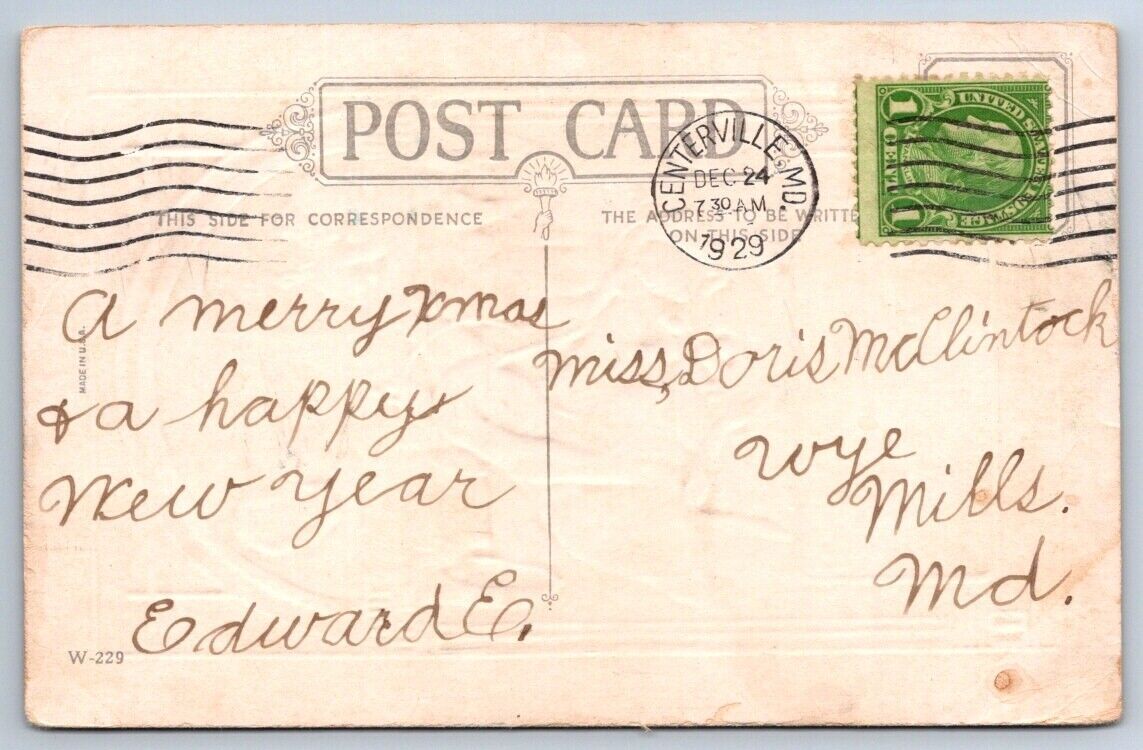 POST CARD
CENTERVILLE, MD.
DEC 24
7 30 AM
1929
THIS SIDE FOR CORRESPONDENCE
THE ADDRESS TO BE WRITTE
ON THIS SIDE
1 UNITED STATES POSTAGE 1
A merry xmas
& a happy
New year
Edward E.
Miss, Doris McClintock
Wye
Mills.
Md.
MADE IN U.S.A.
W-229